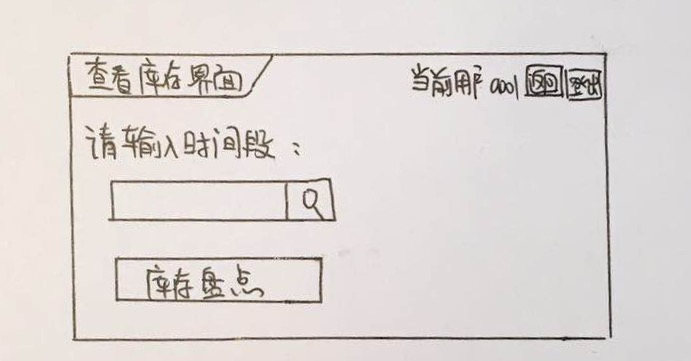 查看库存界面
当前用户 0001 返回 登出
请输入时间段：
库存盘点